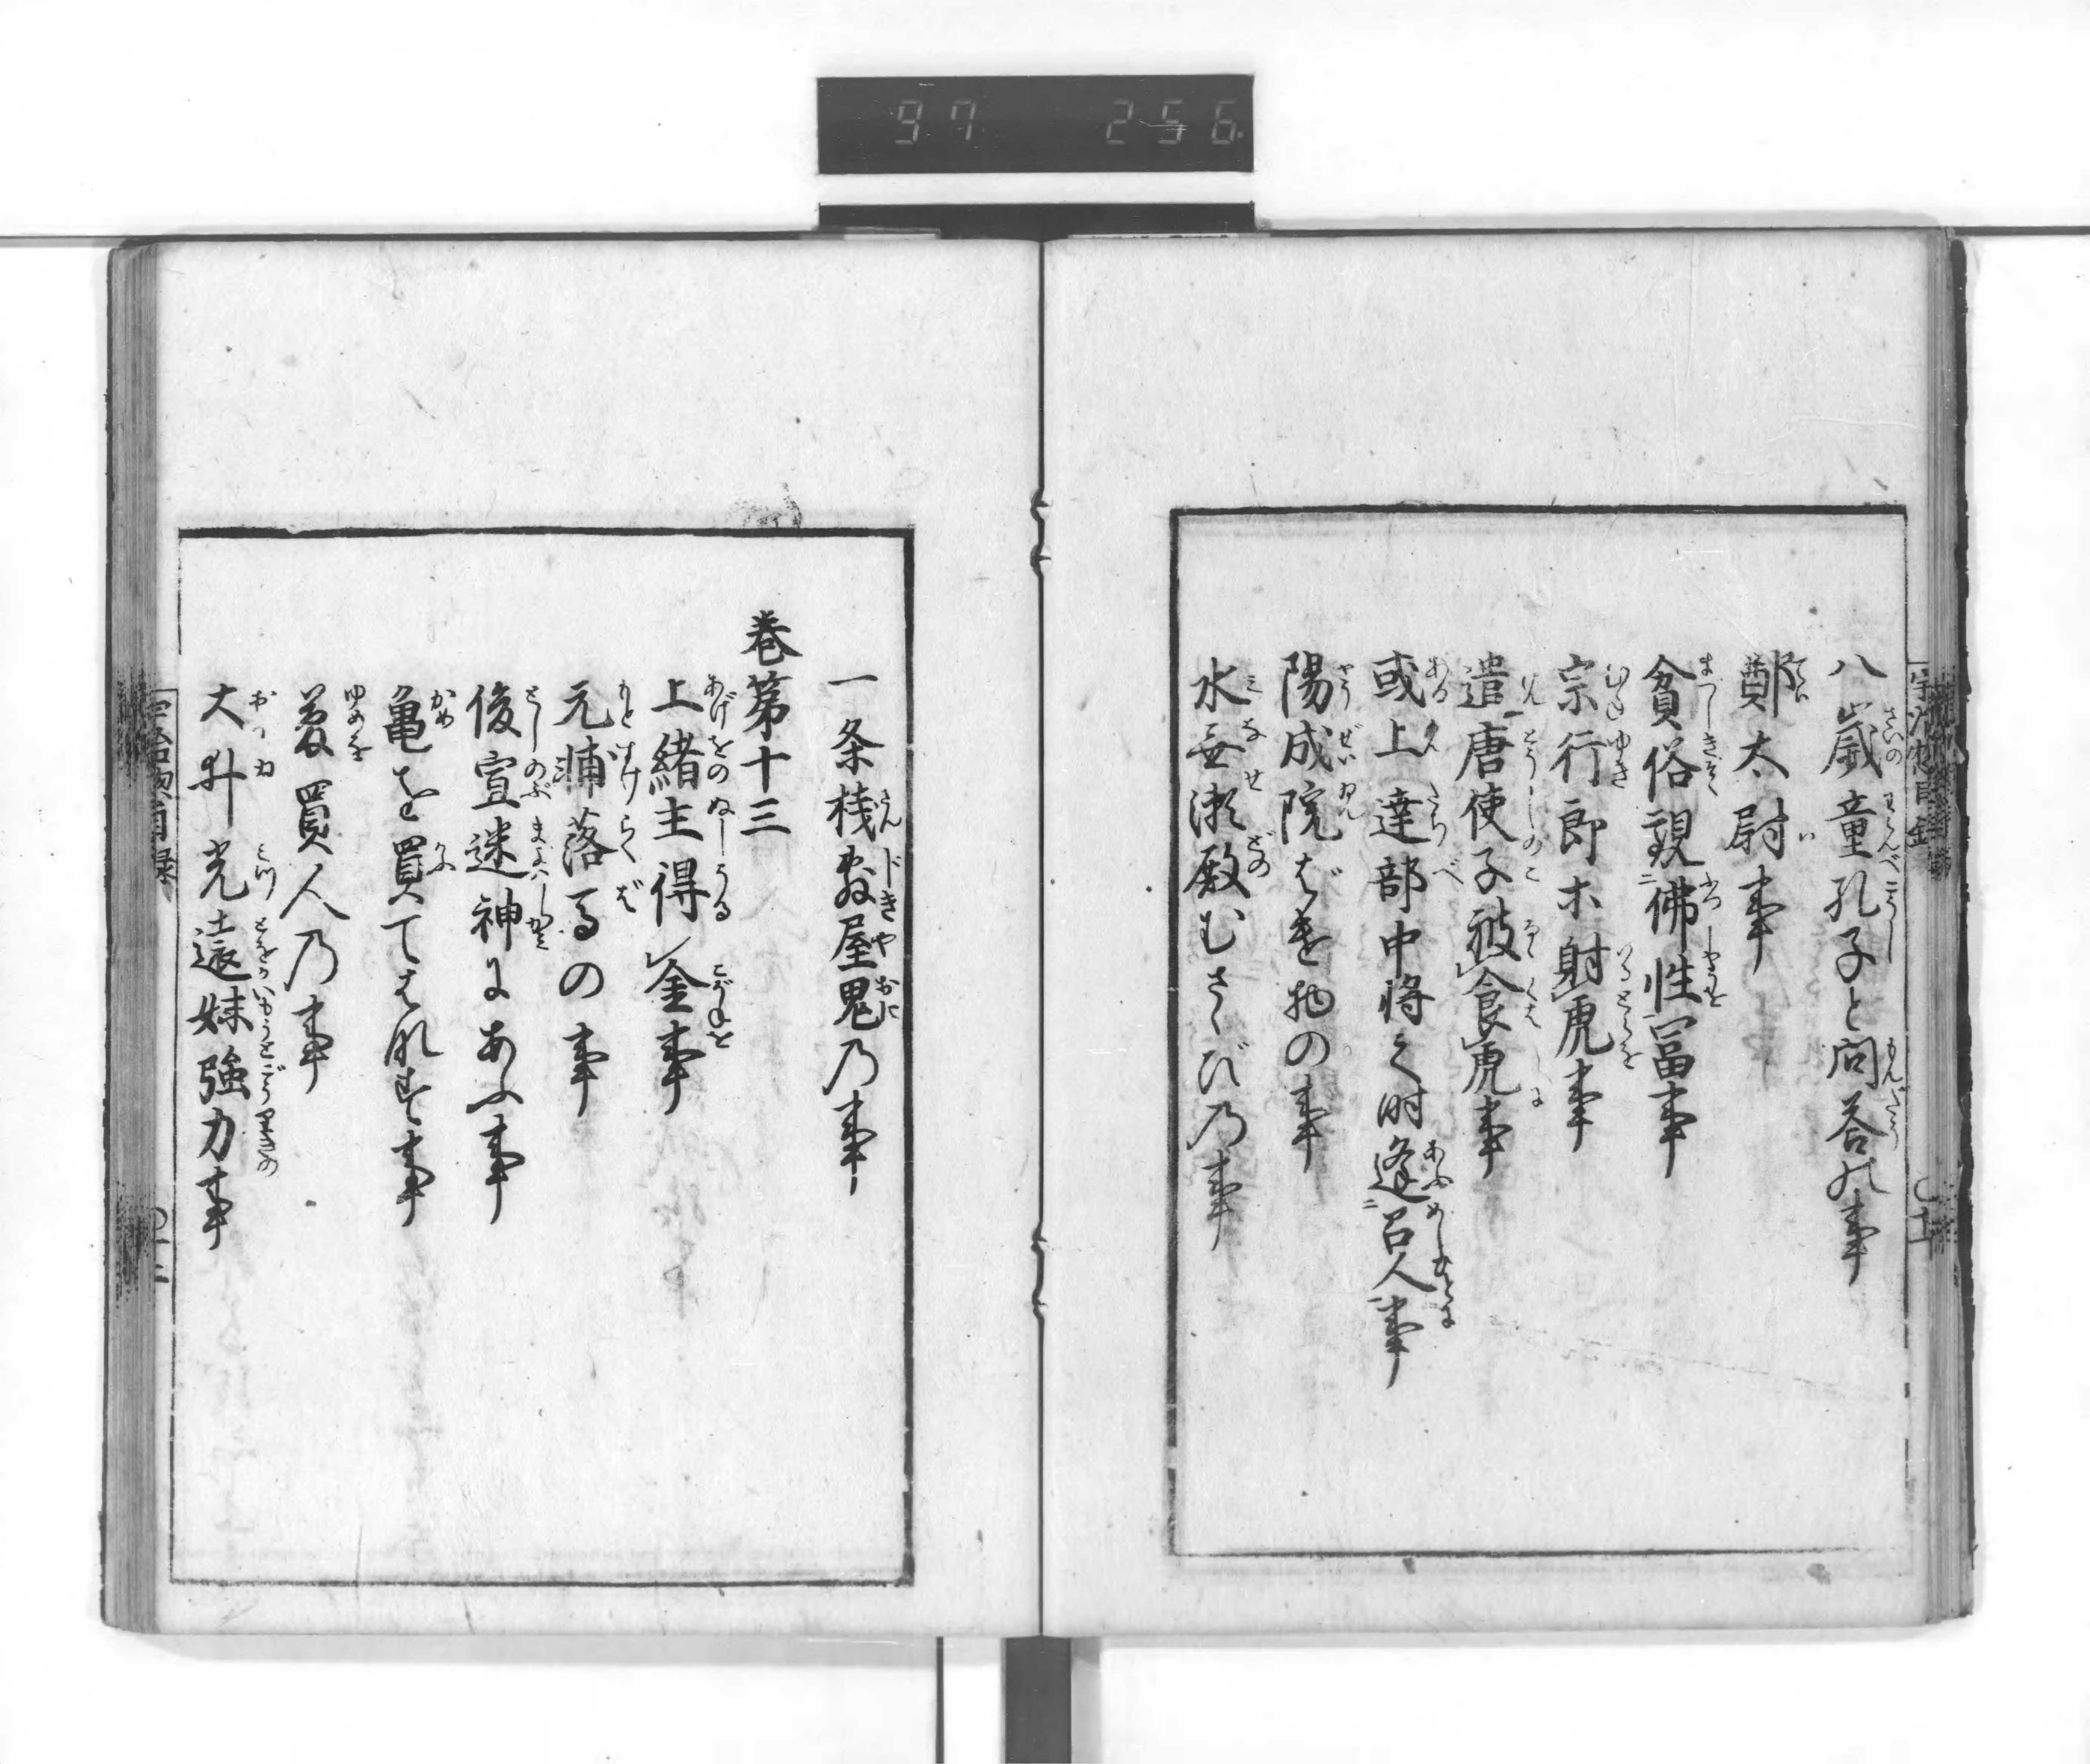 八歳童孔子と問答の事
鄭太尉事
貧俗観佛性富事
宗行郎等射虎事
遣唐使子被食虎事
或上達部中将之時逢召人事
陽成院ばけ物の事
水無瀬殿むさゝびの事
一条桟敷屋鬼乃事
巻第十三
上緒主得金事
元輔落馬の事
俊宣迷神にあふ事
亀を買てはなす事
夢買人乃事
大井光遠妹強力事
宇治拾遺目録
97 256